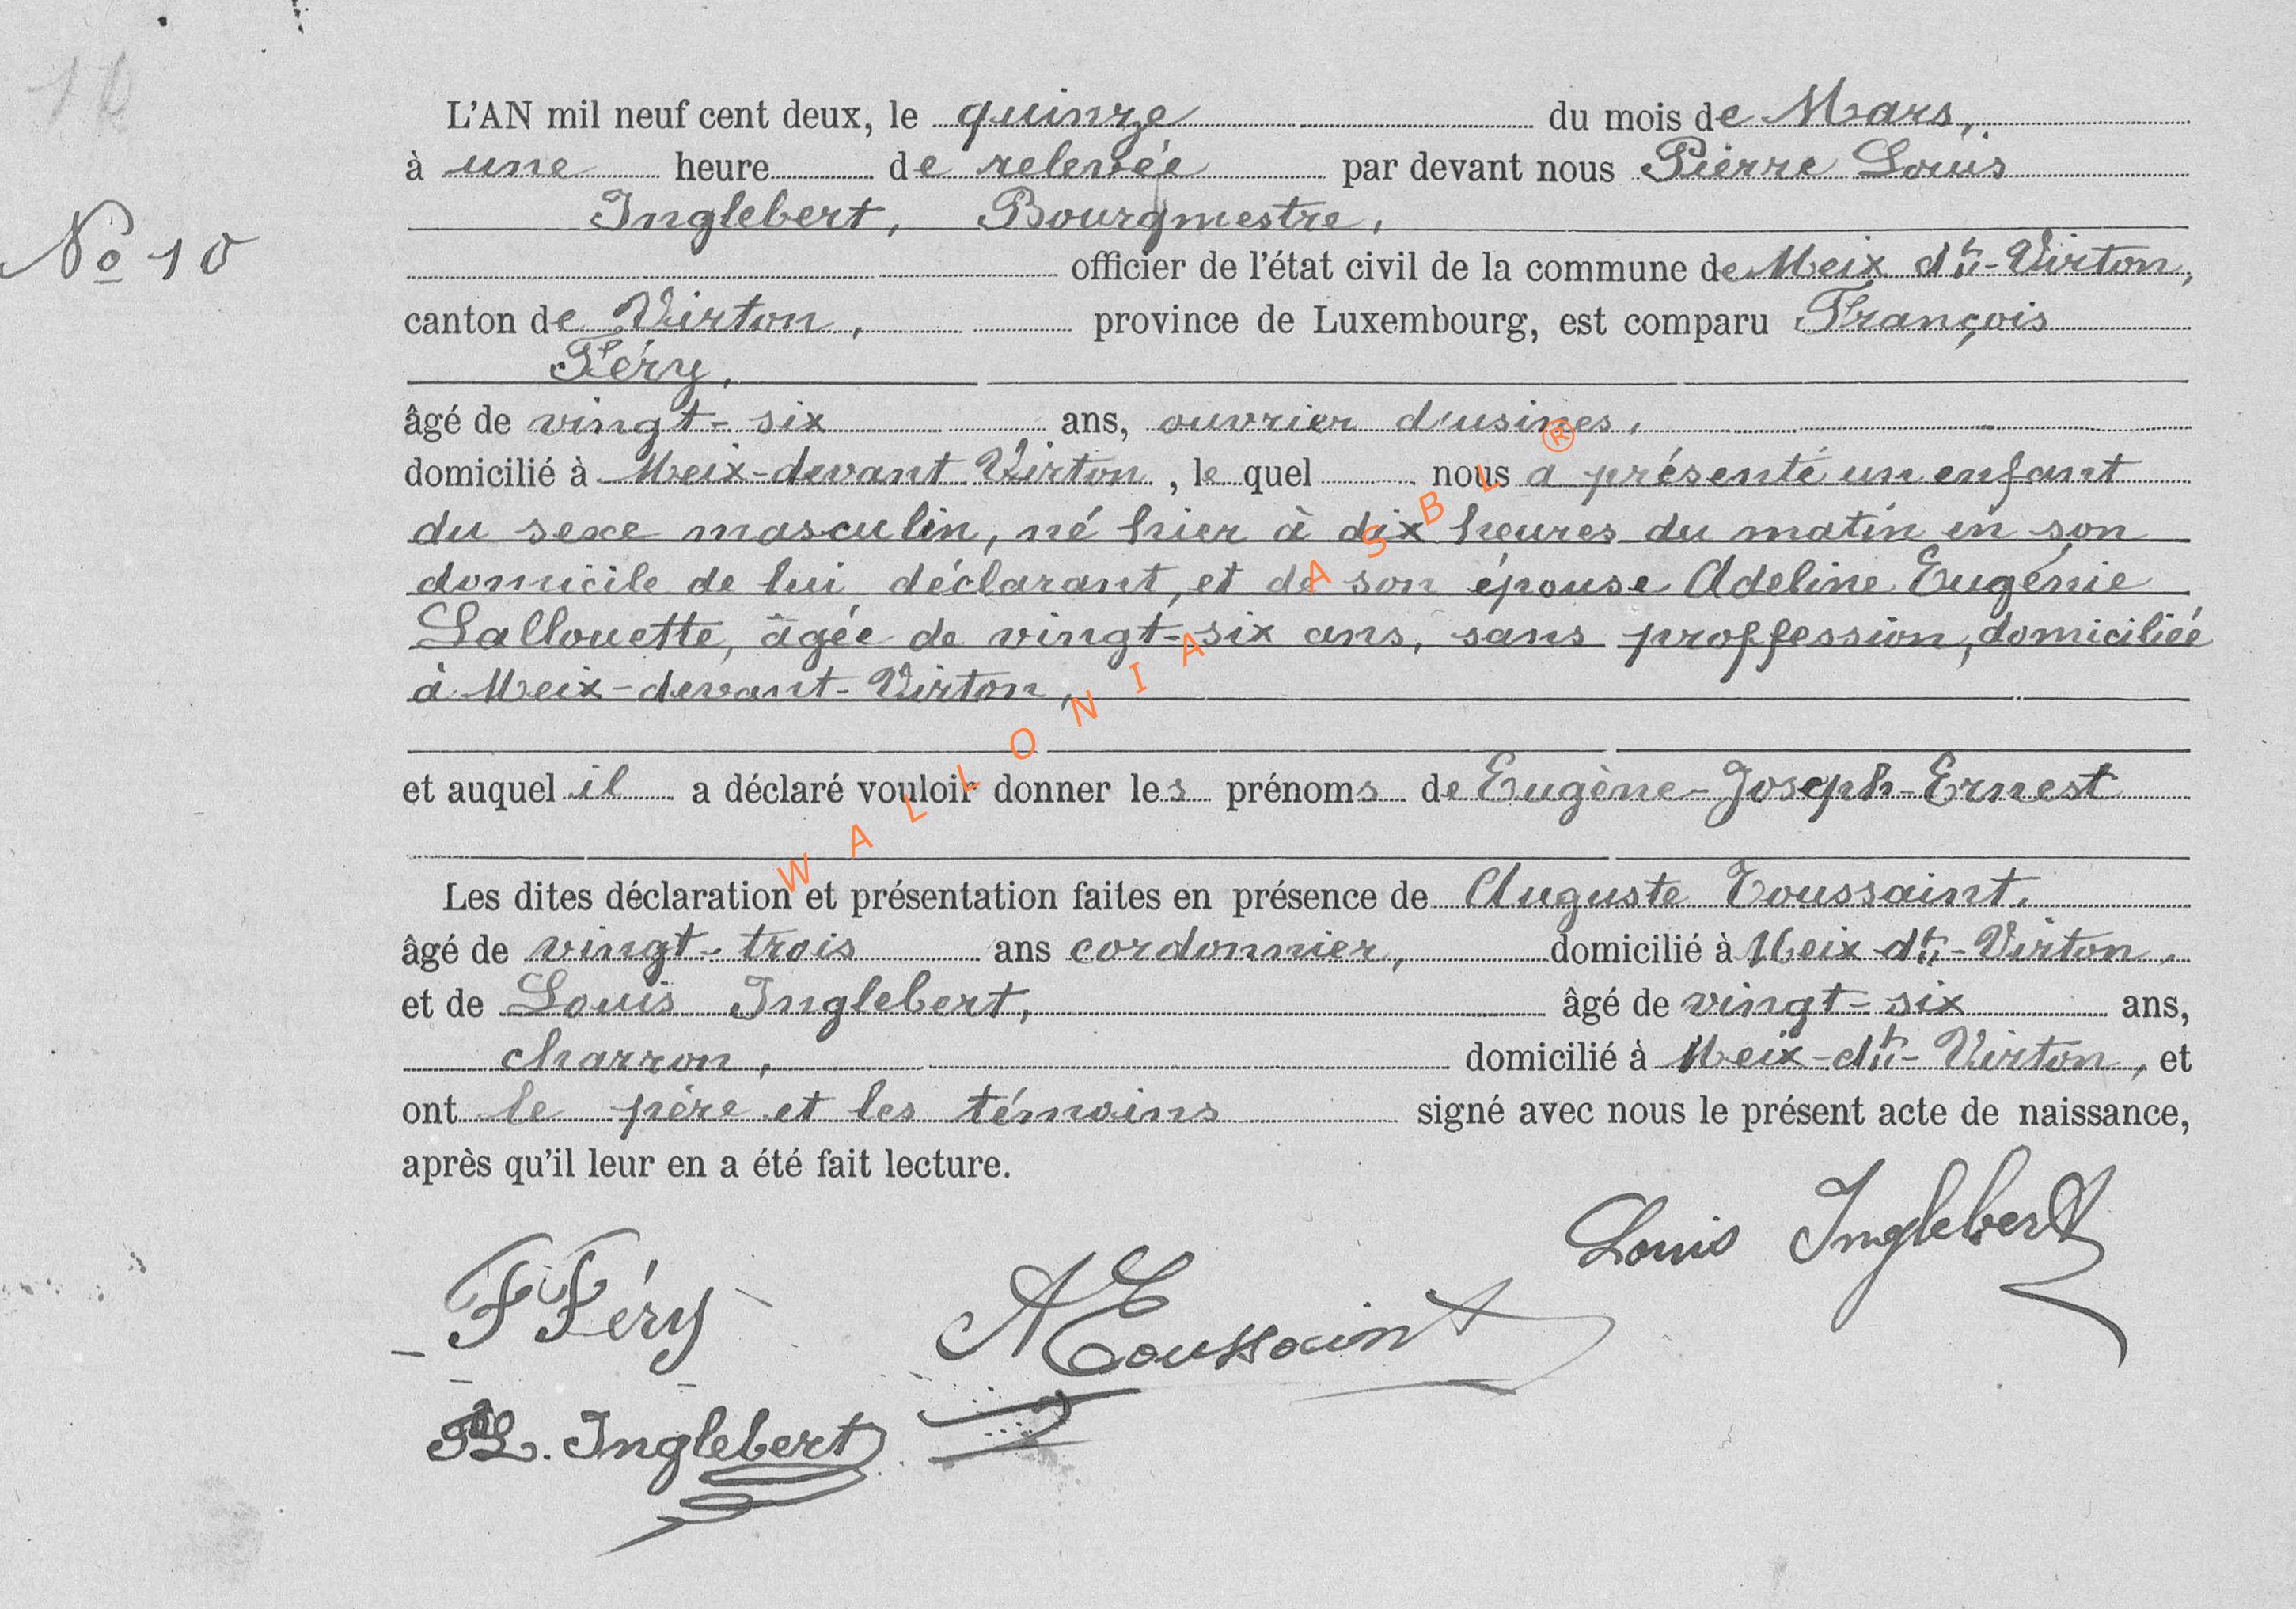 L'AN mil neuf cent deux, le quinze du mois de Mars,
à une heure de relevée par devant nous Pierre Louis
Inglebert, Bourgmestre,
No 10
officier de l'état civil de la commune de Meix dt-Virton,
canton de Virton, province de Luxembourg, est comparu François
Féry,
âgé de vingt-six ans, ouvrier d'usines,
domicilié à Meix-devant Virton, le quel nous a présenté un enfant
du sexe masculin, né hier à dix heures du matin en son
domicile de lui déclarant, et de son épouse Adeline Eugénie
Lallouette, âgée de vingt-six ans, sans proffession, domiciliée
à Meix-devant-Virton,
et auquel il a déclaré vouloir donner les prénoms de Eugène-Joseph-Ernest
Les dites déclaration et présentation faites en présence de Auguste Toussaint,
âgé de vingt-trois ans cordonnier, domicilié à Meix dt-Virton,
et de Louis Inglebert, âgé de vingt-six ans,
charron, domicilié à Meix-dt-Virton, et
ont le père et les témoins signé avec nous le présent acte de naissance,
après qu'il leur en a été fait lecture.
Louis Inglebert
F Féry A Toussaint
PL. Inglebert
WALLONIA ASBL ®